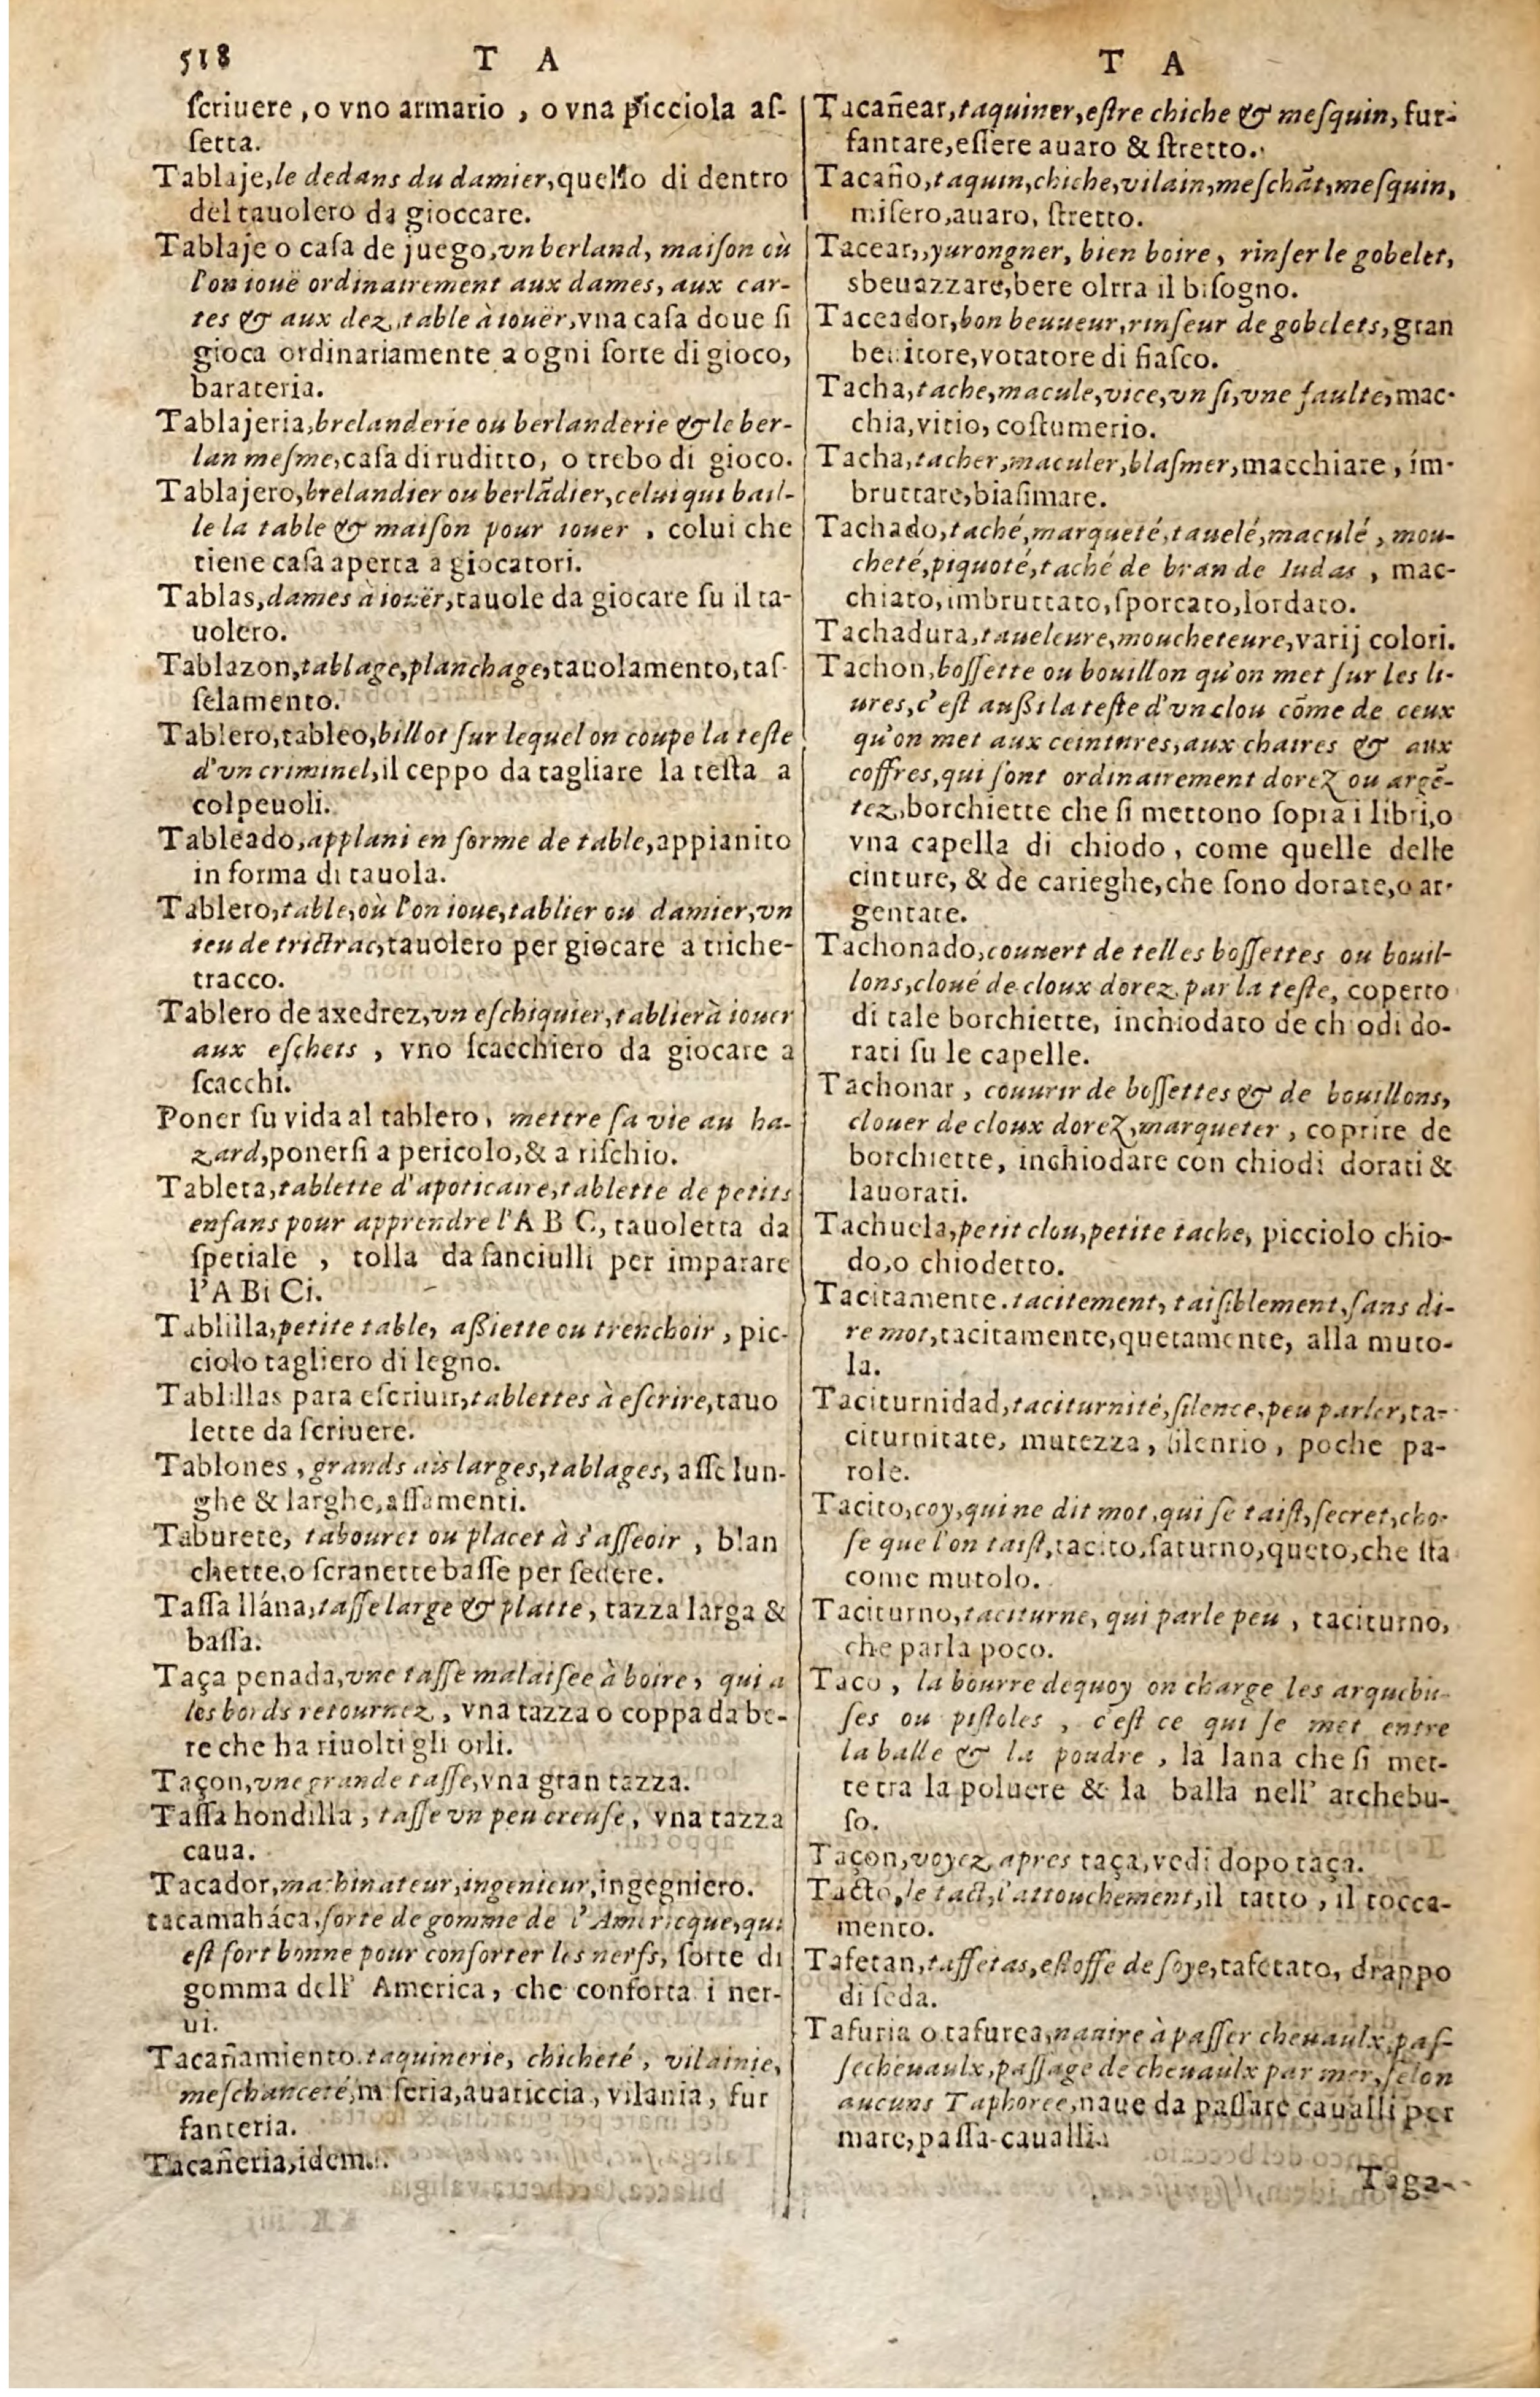 518 T A
ſcriuere, o vno armario, o vna picciola aſ-
ſetta.
Tablaje, le dedans du damier, quello di dentro
del tauolero da gioccare.
Tablaje o caſa de juego, vn berland, maiſon où
l'on iouë ordinairement aux dames, aux car-
tes & aux dez, table à iouër, vna caſa doue ſi
gioca ordinariamente a ogni ſorte di gioco,
barateria.
Tablajeria, brelanderie ou berlanderie & le ber-
lan meſme, caſa di ruditto, o trebo di gioco.
Tablajero, brelandier ou berlãdier, celui qui bail-
le la table & maiſon pour iouer, colui che
tiene caſa aperta a giocatori.
Tablas, dames à iouër, tauole da giocare ſu il ta-
uolero.
Tablazon, tablage, planchage, tauolamento, taſ-
ſelamento.
Tablero, tableo, billot ſur lequel on coupe la teſte
d'vn criminel, il ceppo da tagliare la teſta a
colpeuoli.
Tableado, applani en forme de table, appianito
in forma di tauola.
Tablero, table, où l'on ioue, tablier ou damier, vn
ieu de trictrac, tauolero per giocare a triche-
tracco.
Tablero de axedrez, vn eſchiquier, tablier à iouer
aux eſchets, vno ſcacchiero da giocare a
ſcacchi.
Poner ſu vida al tablero, mettre ſa vie au ha-
zard, ponerſi a pericolo, & a riſchio.
Tableta, tablette d'apoticaire, tablette de petits
enfans pour apprendre l'A B C, tauoletta da
ſpetiale, tolla da fanciulli per imparare
l'A Bi Ci.
Tablilla, petite table, aßiette ou trenchoir, pic-
ciolo tagliero di legno.
Tablillas para eſcriuir, tablettes à eſcrire, tauo
lette da ſcriuere.
Tablones, grands ais larges, tablages, aſſe lun-
ghe & larghe, aſſamenti.
Taburete, tabouret ou placet à s'aſſeoir, blan
chette, o ſcranette baſſe per ſedere.
Taſſa llána, taſſe large & platte, tazza larga &
baſſa.
Taça penada, vne taſſe malaiſee à boire, qui a
les bords retournez, vna tazza o coppa da be-
re che ha riuolti gli orli.
Taçon, vne grande taſſe, vna gran tazza.
Taſſa hondilla, taſſe vn peu creuſe, vna tazza
caua.
Tacador, machinateur, ingenieur, ingegniero.
tacamaháca, ſorte de gomme de l'Americque, qui
eſt fort bonne pour conforter les nerfs, ſorte di
gomma dell' America, che conforta i ner-
ui.
Tacañamiento. taquinerie, chicheté, vilainie,
meſchanceté, miſeria, auariccia, vilania, fur
fanteria.
Tacañeria, idem.
T A
Tacañear, taquiner, eſtre chiche & meſquin, fur-
fantare, eſſere auaro & ſtretto.
Tacaño, taquin, chiche, vilain, meſchãt, meſquin,
miſero, auaro, ſtretto.
Tacear, yurongner, bien boire, rinſer le gobelet,
sbeuazzare, bere oltra il biſogno.
Taceador, bon beuueur, rinſeur de gobelets, gran
beuitore, votatore di fiaſco.
Tacha, tache, macule, vice, vn ſi, vne faulte, mac-
chia, vitio, coſtumerio.
Tacha, tacher, maculer, blaſmer, macchiare, im-
bruttare, biaſimare.
Tachado, taché, marqueté, tauelé, maculé, mou-
cheté, piquoté, taché de bran de Iudas, mac-
chiato, imbruttato, ſporcato, lordato.
Tachadura, taueleure, moucheteure, varij colori.
Tachon, boſſette ou bouillon qu'on met ſur les li-
ures, c'eſt außi la teſte d'vn clou cõme de ceux
qu'on met aux ceintures, aux chaires & aux
coffres, qui ſont ordinairement dorez ou argẽ-
tez, borchiette che ſi mettono ſopra i libri, o
vna capella di chiodo, come quelle delle
cinture, & de carieghe, che ſono dorate, o ar-
gentate.
Tachonado, couuert de telles boſſettes ou bouil-
lons, cloué de cloux dorez par la teſte, coperto
di tale borchiette, inchiodato de chiodi do-
rati ſu le capelle.
Tachonar, couurir de boſſettes & de bouillons,
clouer de cloux dorez, marqueter, coprire de
borchiette, inchiodare con chiodi dorati &
lauorati.
Tachuela, petit clou, petite tache, picciolo chio-
do, o chiodetto.
Tacitamente. tacitement, taiſiblement, ſans di-
re mot, tacitamente, quetamente, alla muto-
la.
Taciturnidad, taciturnité, ſilence, peu parler, ta-
citurnitate, mutezza, ſilentio, poche pa-
role.
Tacito, coy, qui ne dit mot, qui ſe taiſt, ſecret, cho-
ſe que l'on taiſt, tacito, ſaturno, queto, che ſta
come mutolo.
Taciturno, taciturne, qui parle peu, taciturno,
che parla poco.
Taco, la bourre dequoy on charge les arquebu-
ſes ou piſtoles, c'eſt ce qui ſe met entre
la balle & la poudre, la lana che ſi met-
te tra la poluere & la balla nell' archebu-
ſo.
Taçon, voyez apres taça, vedi dopo taça.
Tacto, le tact, l'attouchement, il tatto, il tocca-
mento.
Tafetan, taffetas, eſtoffe de ſoye, tafetato, drappo
di ſeda.
Tafuria o tafurea, nauire à paſſer cheuaulx, paſ-
ſecheuaulx, paſſage de cheuaulx par mer, ſelon
aucuns Taphoree, naue da paſſare caualli per
mare, paſſa-caualli.
Taga-